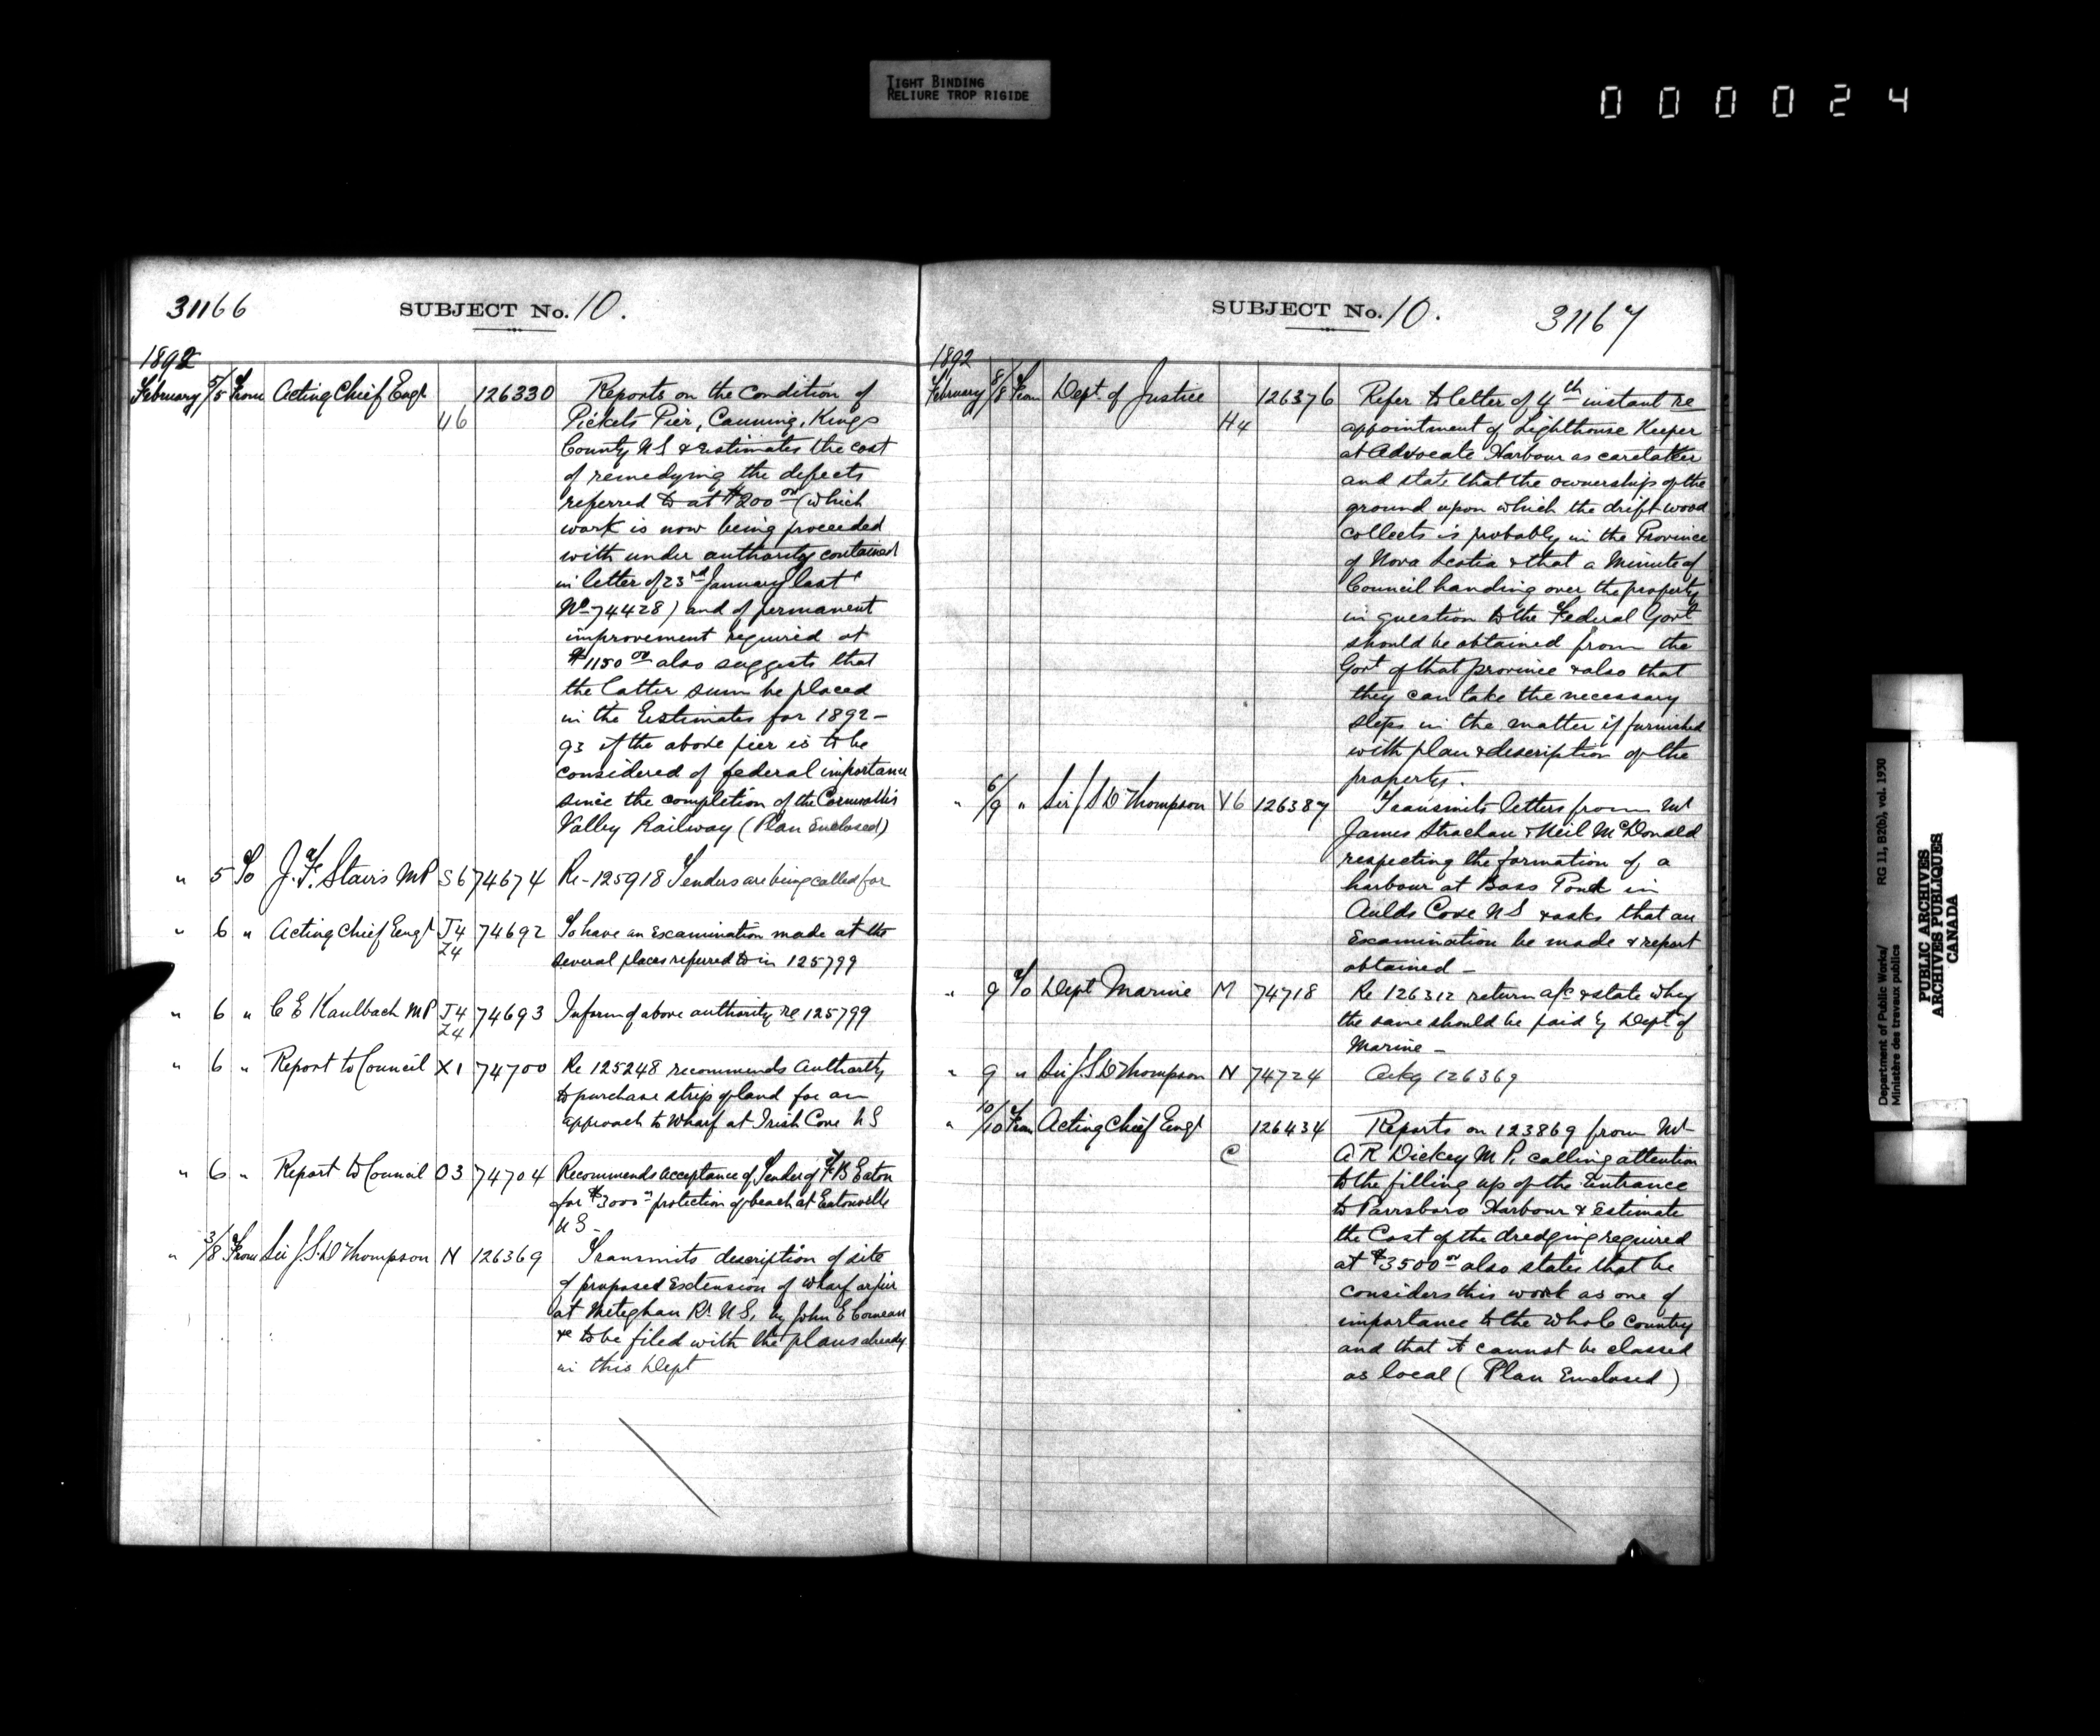 TIGHT BINDING
RELIURE TROP RIGIDE
000024
31166
SUBJECT No. 10.
1892
February 5/5 From Acting Chief Engr U6 126330 Reports on the condition of
Pickets Pier, Canning, Kings
County N S & Estimates the cost
of remedying the defects
referred to at $200 00 (which
work is now being proceeded
with under authority contained
in letter of 23rd January last
No 74428) and of permanent
improvement required at
$1150 00 also suggests that
the latter sum be placed
in the Estimates for 1892-
93 if the above pier is to be
considered of federal importance
since the completion of the Cornwallis
Valley Railway (Plan Enclosed)
" 5 To J. F. Stairs MP S6 74674 Re-125918 Tenders are being called for
" 6 " Acting Chief Engr J4 Z4 74692 To have an examination made at the
several places referred to in 125799
" 6 " C E Kaulbach MP J4 Z4 74693 Inform of above authority re 125799
" 6 " Report to Council X1 74700 Re 125248 recommends authority
to purchase strip of land for an
approach to Wharf at Irish Cove N S
" 6 " Report to Council O3 74704 Recommends acceptance of Tender of F B Eaton
for $3000 protection of beach at Eatonville
N S-
" 3/8 From Sir J. S. D Thompson N 126369 Transmits description of site
of proposed Extension of wharf or pier
at Meteghan Rr N S, by John E Comeau
&c to be filed with the plans already
in this Dept
SUBJECT No. 10.
31167
1892
February 8/8 From Dept. of Justice H4 126376 Refer to letter of 4th instant re
appointment of Lighthouse Keeper
at Advocate Harbour as caretaker
and state that the ownership of the
ground upon which the drift wood
collects is probably in the Province
of Nova Scotia & that a Minute of
Council handing over the property
in question to the Federal Govt
should be obtained from the
Govt of that province & also that
they can take the necessary
steps in the matter if furnished
with plan & description of the
property.
" 6/9 " Sir J S D Thompson V6 126387 Transmits letters from Mr
James Strachan & Neil McDonald
respecting the formation of a
harbour at Bass Pond in
Aulds Cove N S & asks that an
Examination be made & report
obtained -
" 9 To Dept Marine M 74718 Re 126312 return a/c & state why
the same should be paid by Dept of
Marine -
" 9 " Sir J. S D Thompson N 74724 Ackg 126369
" 10/10 From Acting Chief Engr C 126434 Reports on 123869 from Mr
A R Dickey M P. calling attention
to the filling up of the Entrance
to Parrsboro Harbour & Estimate
the Cost of the dredging required
at $3500 00 also states that he
considers this work as one of
importance to the whole Country
and that it cannot be classed
as local (Plan Enclosed)
Department of Public Works/ RG 11, B2(b), vol. 1930
Ministère des travaux publics
PUBLIC ARCHIVES
ARCHIVES PUBLIQUES
CANADA